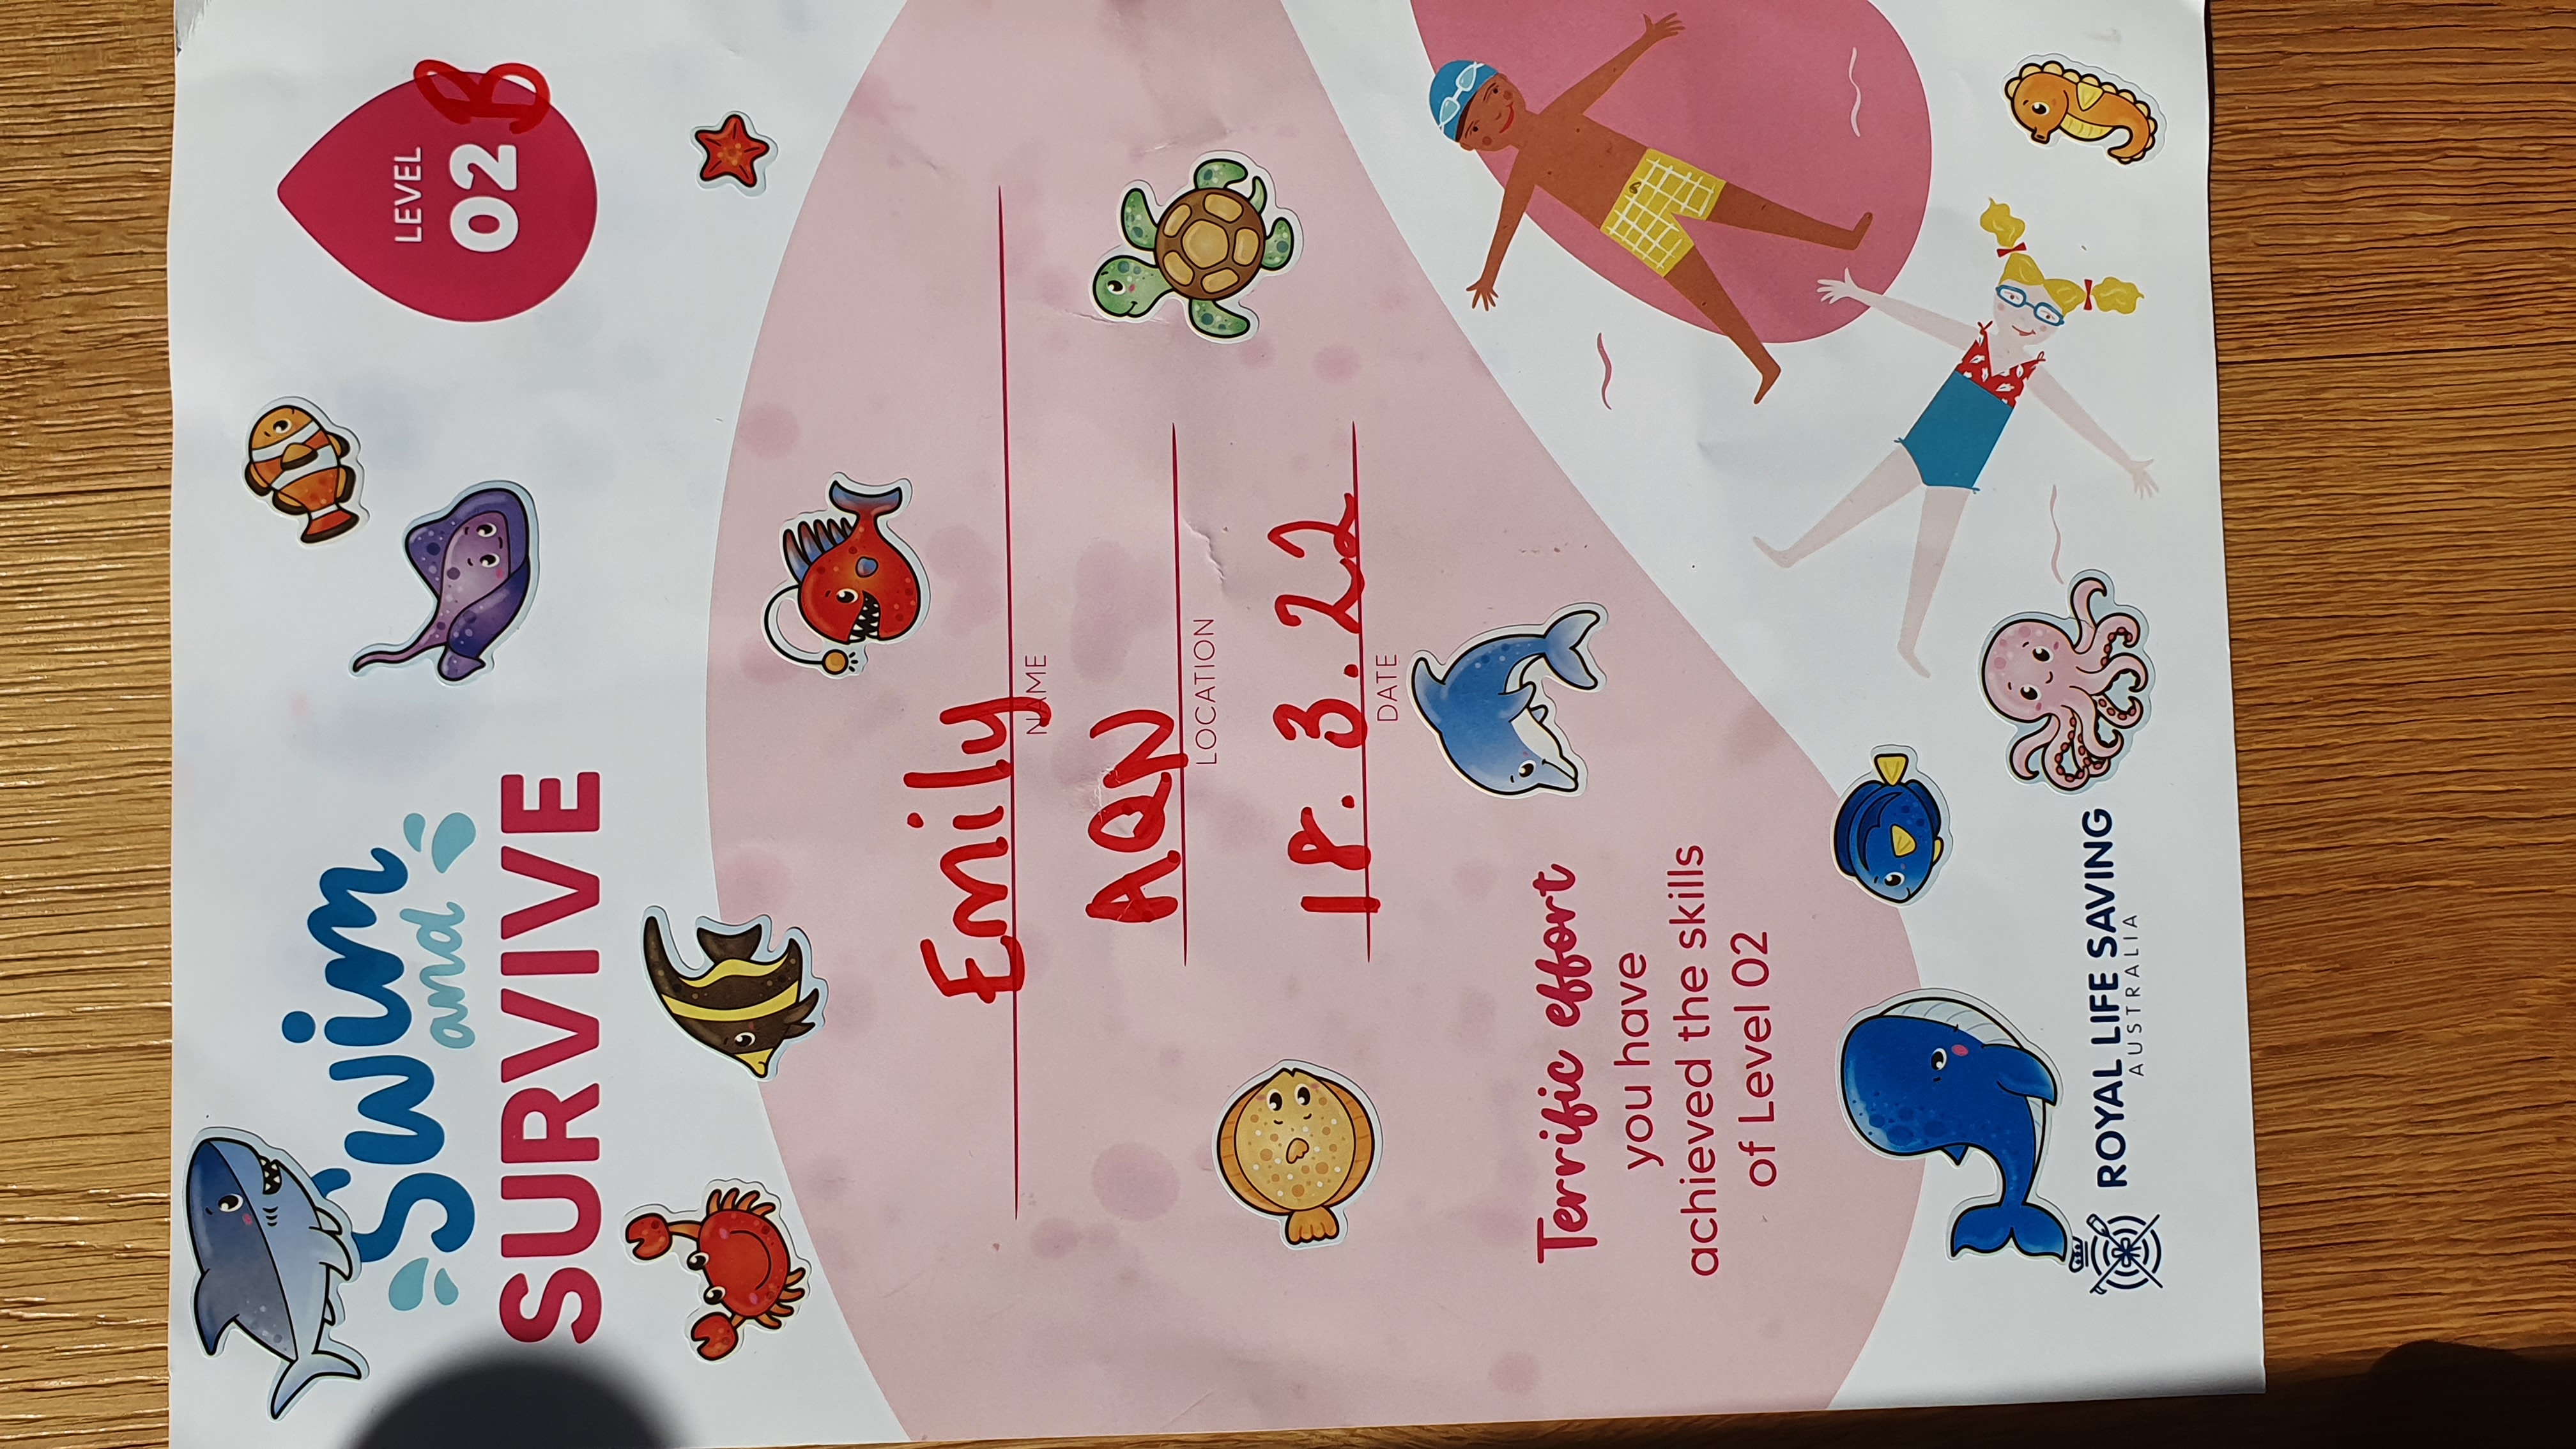 Swim
and
SURVIVE
LEVEL
02 B
Emily
NAME
AQN
LOCATION
18.3.22
DATE
Terrific effort
you have
achieved the skills
of Level 02
ROYAL LIFE SAVING
AUSTRALIA